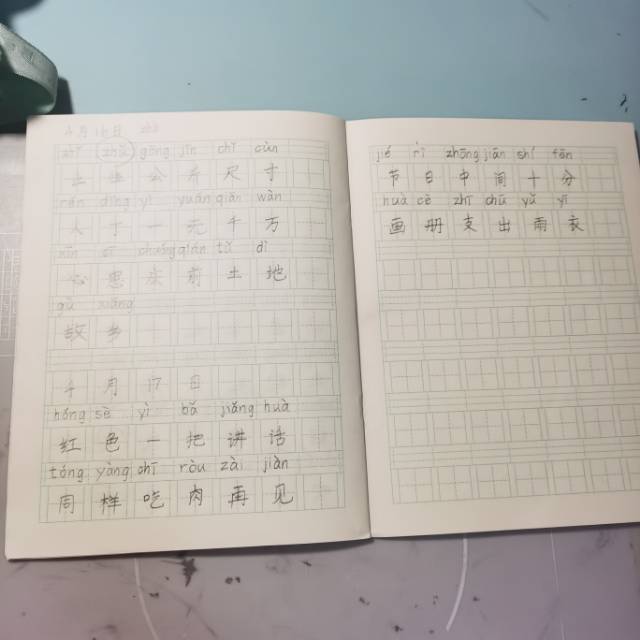 4月16日
gōng jīn chǐ cùn
公斤尺寸
rén dīng yī yuán qiān wàn
人丁一元千万
cóng qián tǔ dì
心思从前土地
gù xiāng
故乡
4月17日
hóng sè yì bǎ jiǎng huà
红色一把讲话
tóng yàng chī ròu zài jiàn
同样吃肉再见
jié rì zhōng jiān shí fēn
节日中间十分
huà cè zhī chū yǔ yī
画册支出雨衣